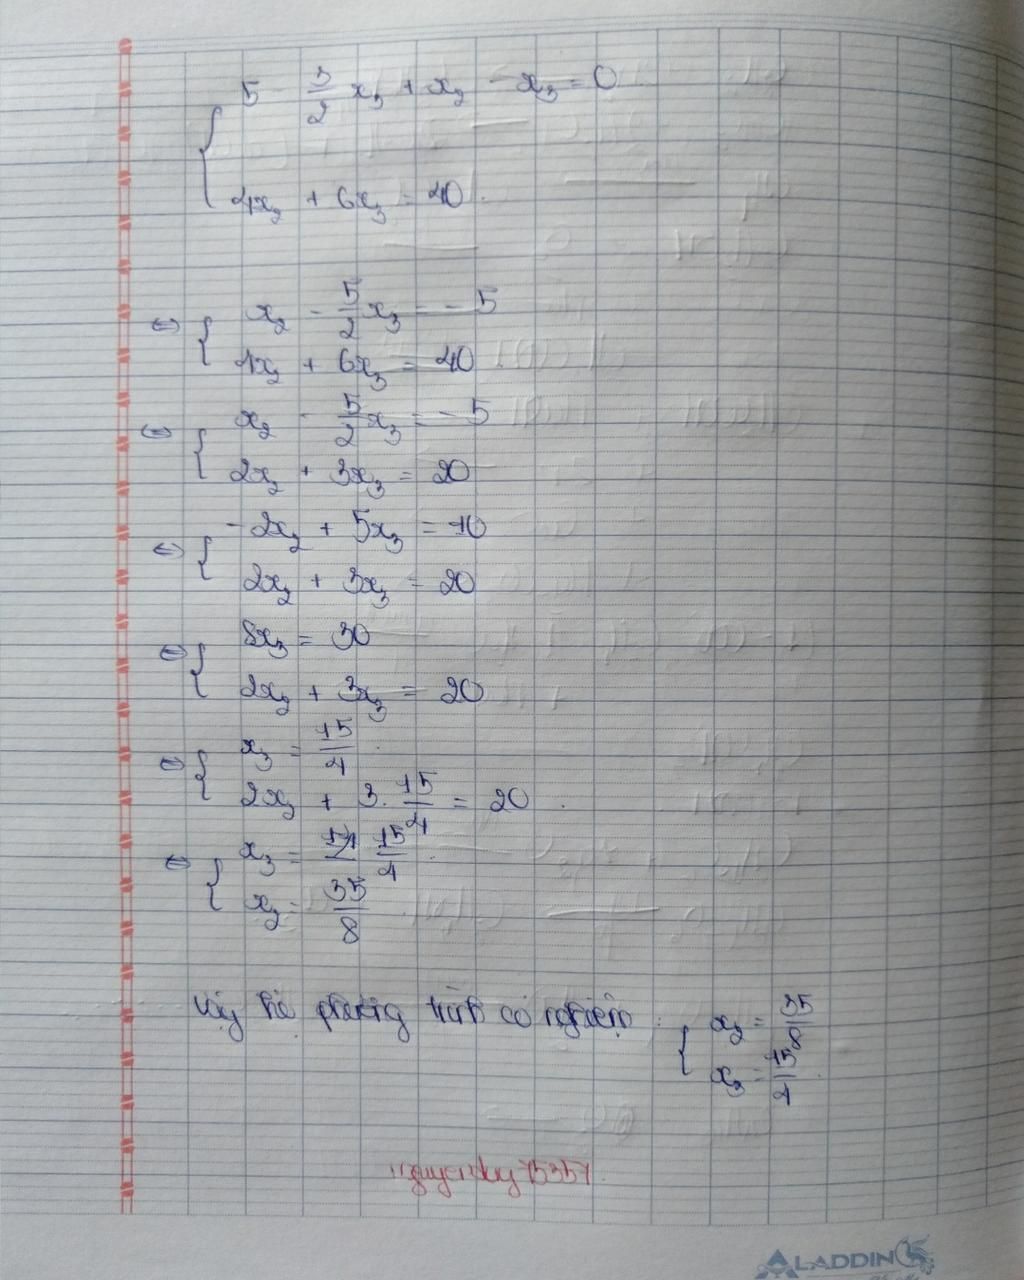 5 - 3/2 x₃ + x₂ - x₃ = 0
4x₂ + 6x₃ = 40.
⇔ { x₂ - 5/2 x₃ = - 5
4x₂ + 6x₃ = 40
⇔ { x₂ - 5/2 x₃ = - 5
2x₂ + 3x₃ = 20
⇔ { - 2x₂ + 5x₃ = 10
2x₂ + 3x₃ = 20
⇔ { 8x₃ = 30
2x₂ + 3x₃ = 20
⇔ { x₃ = 15/4.
2x₂ + 3. 15/4 = 20.
⇔ { x₃ = 15/4.
x₂ = 35/8
Vậy hệ phương trình có nghiệm: { x₂ = 35/8
x₃ = 15/4.
nguyenduy75357.
ALADDIN